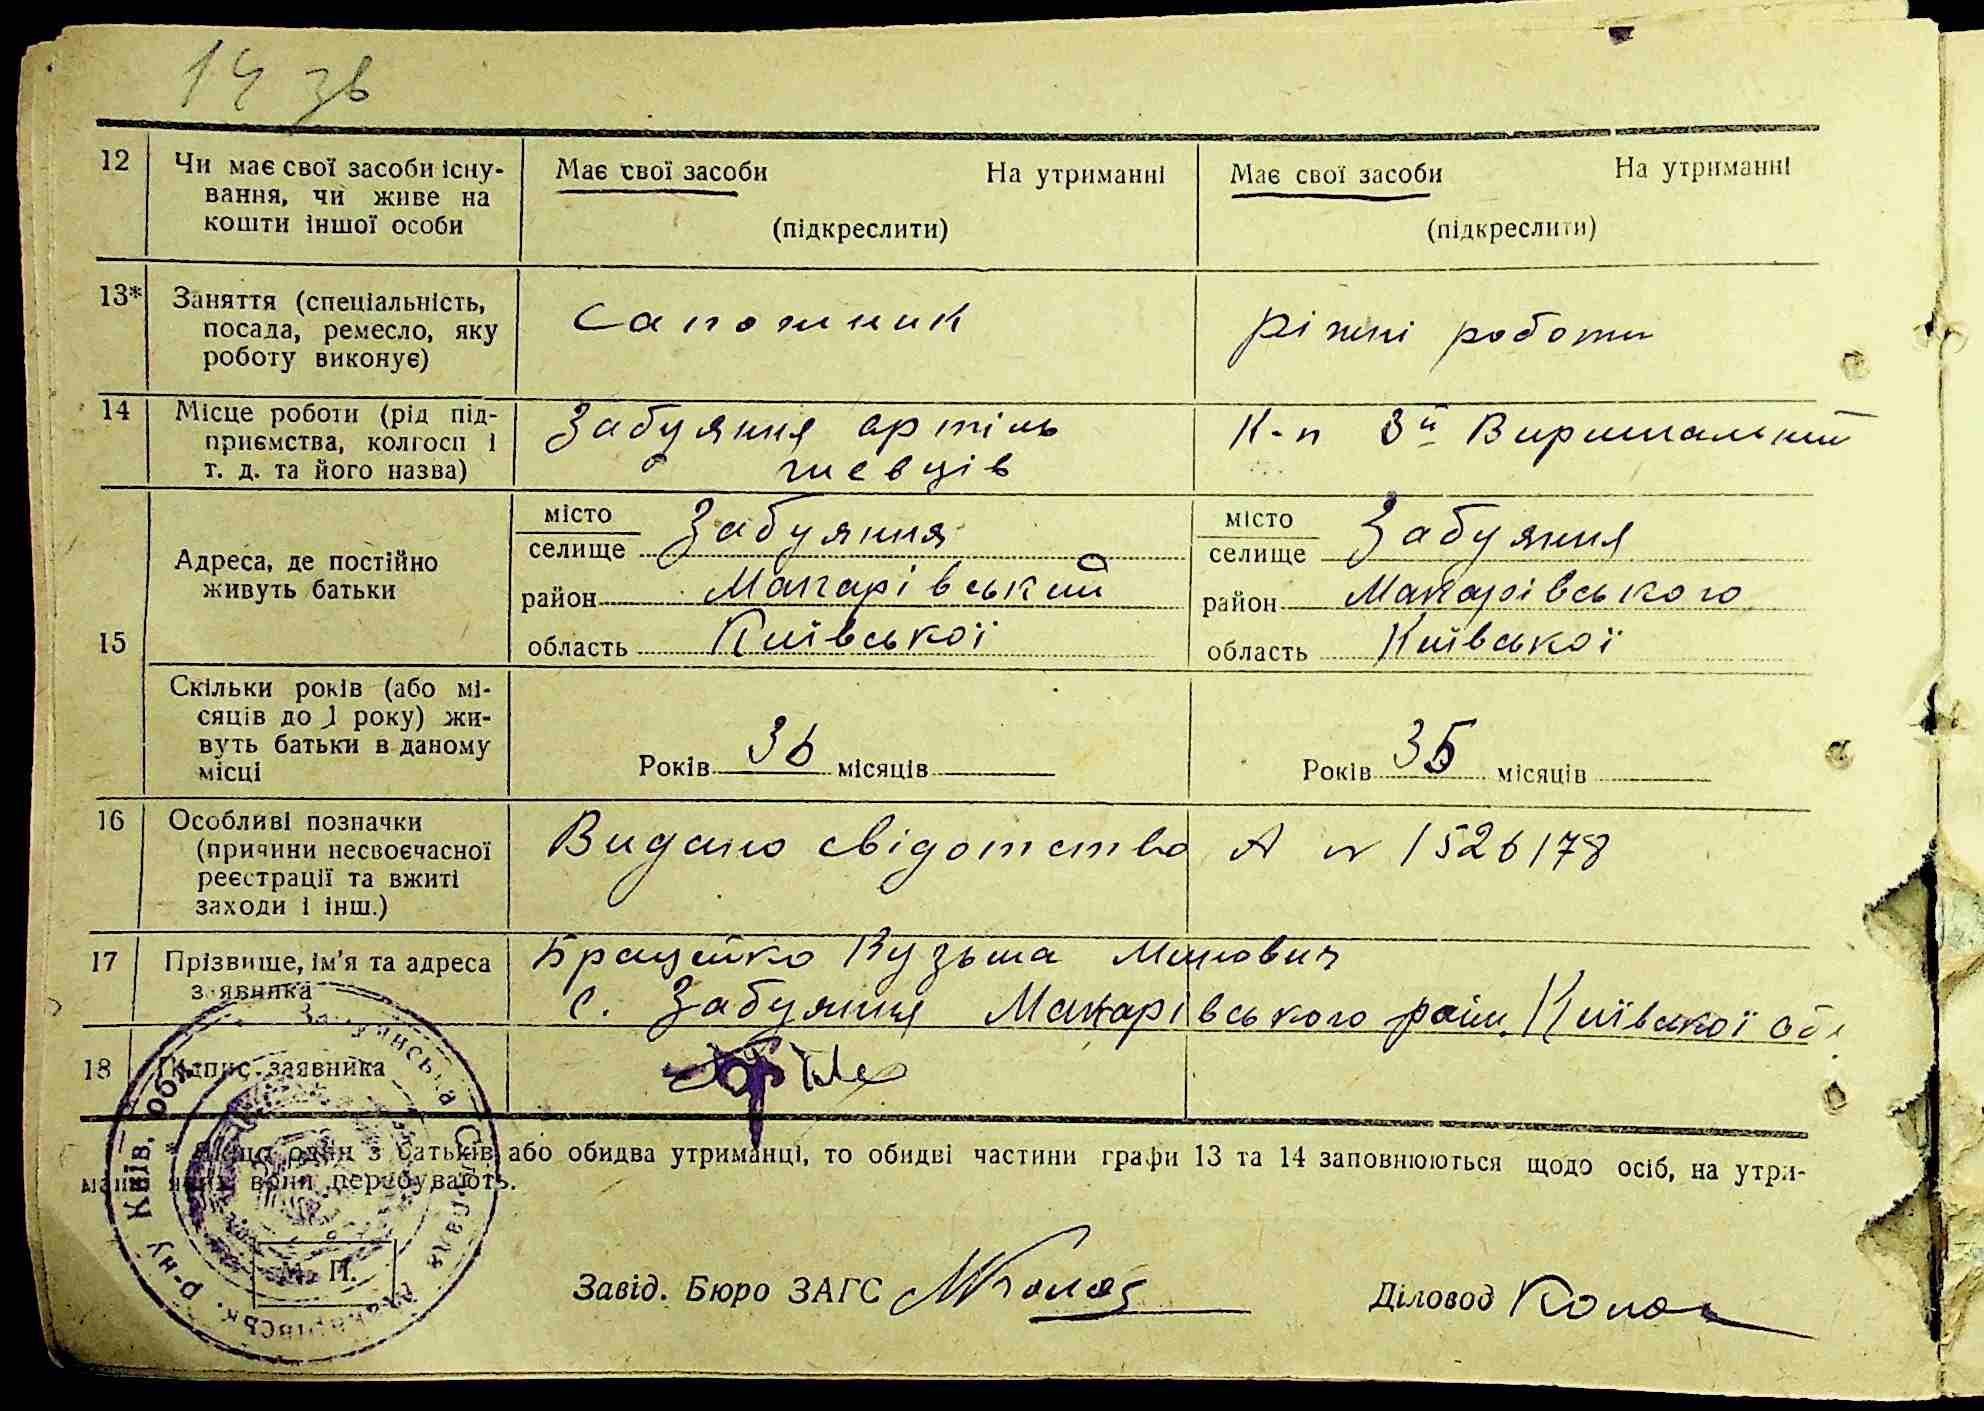 14 зв
12 Чи має свої засоби існу- Має свої засоби На утриманні Має свої засоби На утриманні
вання, чи живе на
кошти іншої особи (підкреслити) (підкреслити)
13* Заняття (спеціальність, Сапожник ріжні роботи
посада, ремесло, яку
роботу виконує)
14 Місце роботи (рід під- Забуяння артіль К-п 3й Вирішальний
приємства, колгосп і швеців
т. д. та його назва)
15 Адреса, де постійно
живуть батьки
місто Забуяння місто Забуяння
селище селище
район Макарівський район Макарівського
область Київської область Київської
Скільки років (або мі-
сяців до 1 року) жи-
вуть батьки в даному
місці Років 36 місяців Років 35 місяців
16 Особливі позначки Видано свідотство А № 1526178
(причини несвоєчасної
реєстрації та вжиті
заходи і інш.)
17 Прізвище, ім'я та адреса Кузьма Минович
заявника с. Забуяння Макарівського райн. Київської обл
18 Підпис заявника
* Якщо один з батьків або обидва утриманці, то обидві частини графи 13 та 14 заповнюються щодо осіб, на утри-
манні яких вони перебувають.
М. П.
Завід. Бюро ЗАГС Діловод
Макарівськ. р-ну Київ. обл.